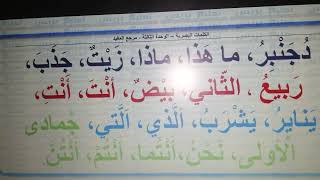 الكلمات البصرية – الوحدة الثالثة - مرجع المفيد
دُجَنْبِرُ، ما هَذا، ماذا، زَيْتٌ، جَذَبَ،
رَبيعُ الثّاني، بَيْضٌ، أَنْتَ، أَنْتِ،
يَنايِر، يَشْرَبُ، الَّذي، الَّتي، جُمادى
الْأولى، نَحْنُ، أَنْتُما، أَنْتُمْ، أَنْتُنَّ.